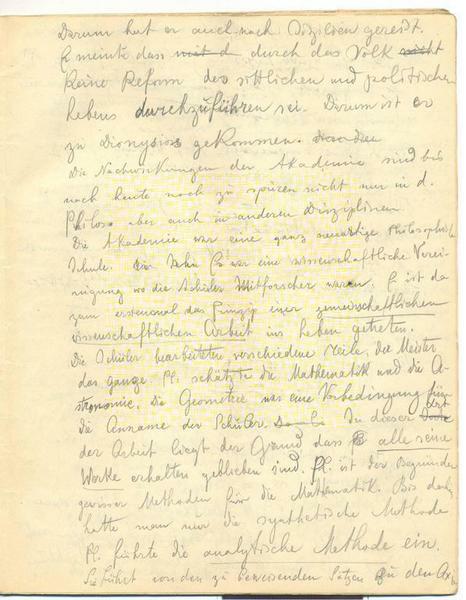 Darum hat er auch nach Sizilien gereist.
E meinte dass mit d durch das Volk nicht
keine Reform des sittlichen und politischen
Lebens durchzuführen sei. Darum ist er
zu Dionysios gekommen.
Die Nachwirkungen der Akademie sind bis
nach heute noch zu spüren nicht nur in d.
Philoso aber auch in anderen Disziplinen.
Die Akademie war eine ganz neuartige Philosophische
Schule. Es war eine wissenschaftliche Verei-
nigung wo die Schüler Mitforscher waren. E ist da
zum erstenmal das Prinzip einer gemeinschaftlichen
wissenschaftlichen Arbeit ins Leben getreten.
Die Schüler bearbeiteten verschiedene Teile, die Meister
das ganze. Pl. schätzte die Mathematik und die A-
stronomie. Die Geometrie war eine Vorbedingung für
die Annahme der Schüler. In dieser
der Arbeit liegt der Grund dass alle seine
Werke erhalten geblieben sind. Pl. ist der Begründer
gewisser Methoden für die Mathematik. Bis dahin
hatte man nur die synthetische Methode
Pl. führte die analytische Methode ein.
Sie führt von den zu beweisenden Sätzen zu den Ax